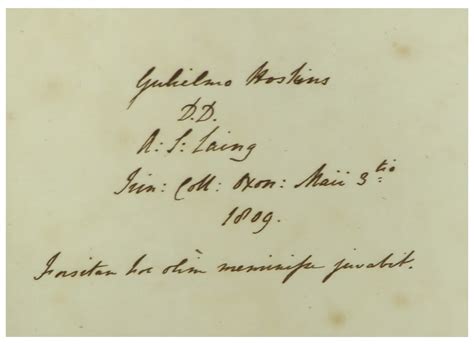 Gulielmo Hoskins
D.D.
A: S: Laing
Trin: Coll: Oxon: Maii 3tio
1809.
Forsitan hoc olim meminisse juvabit.